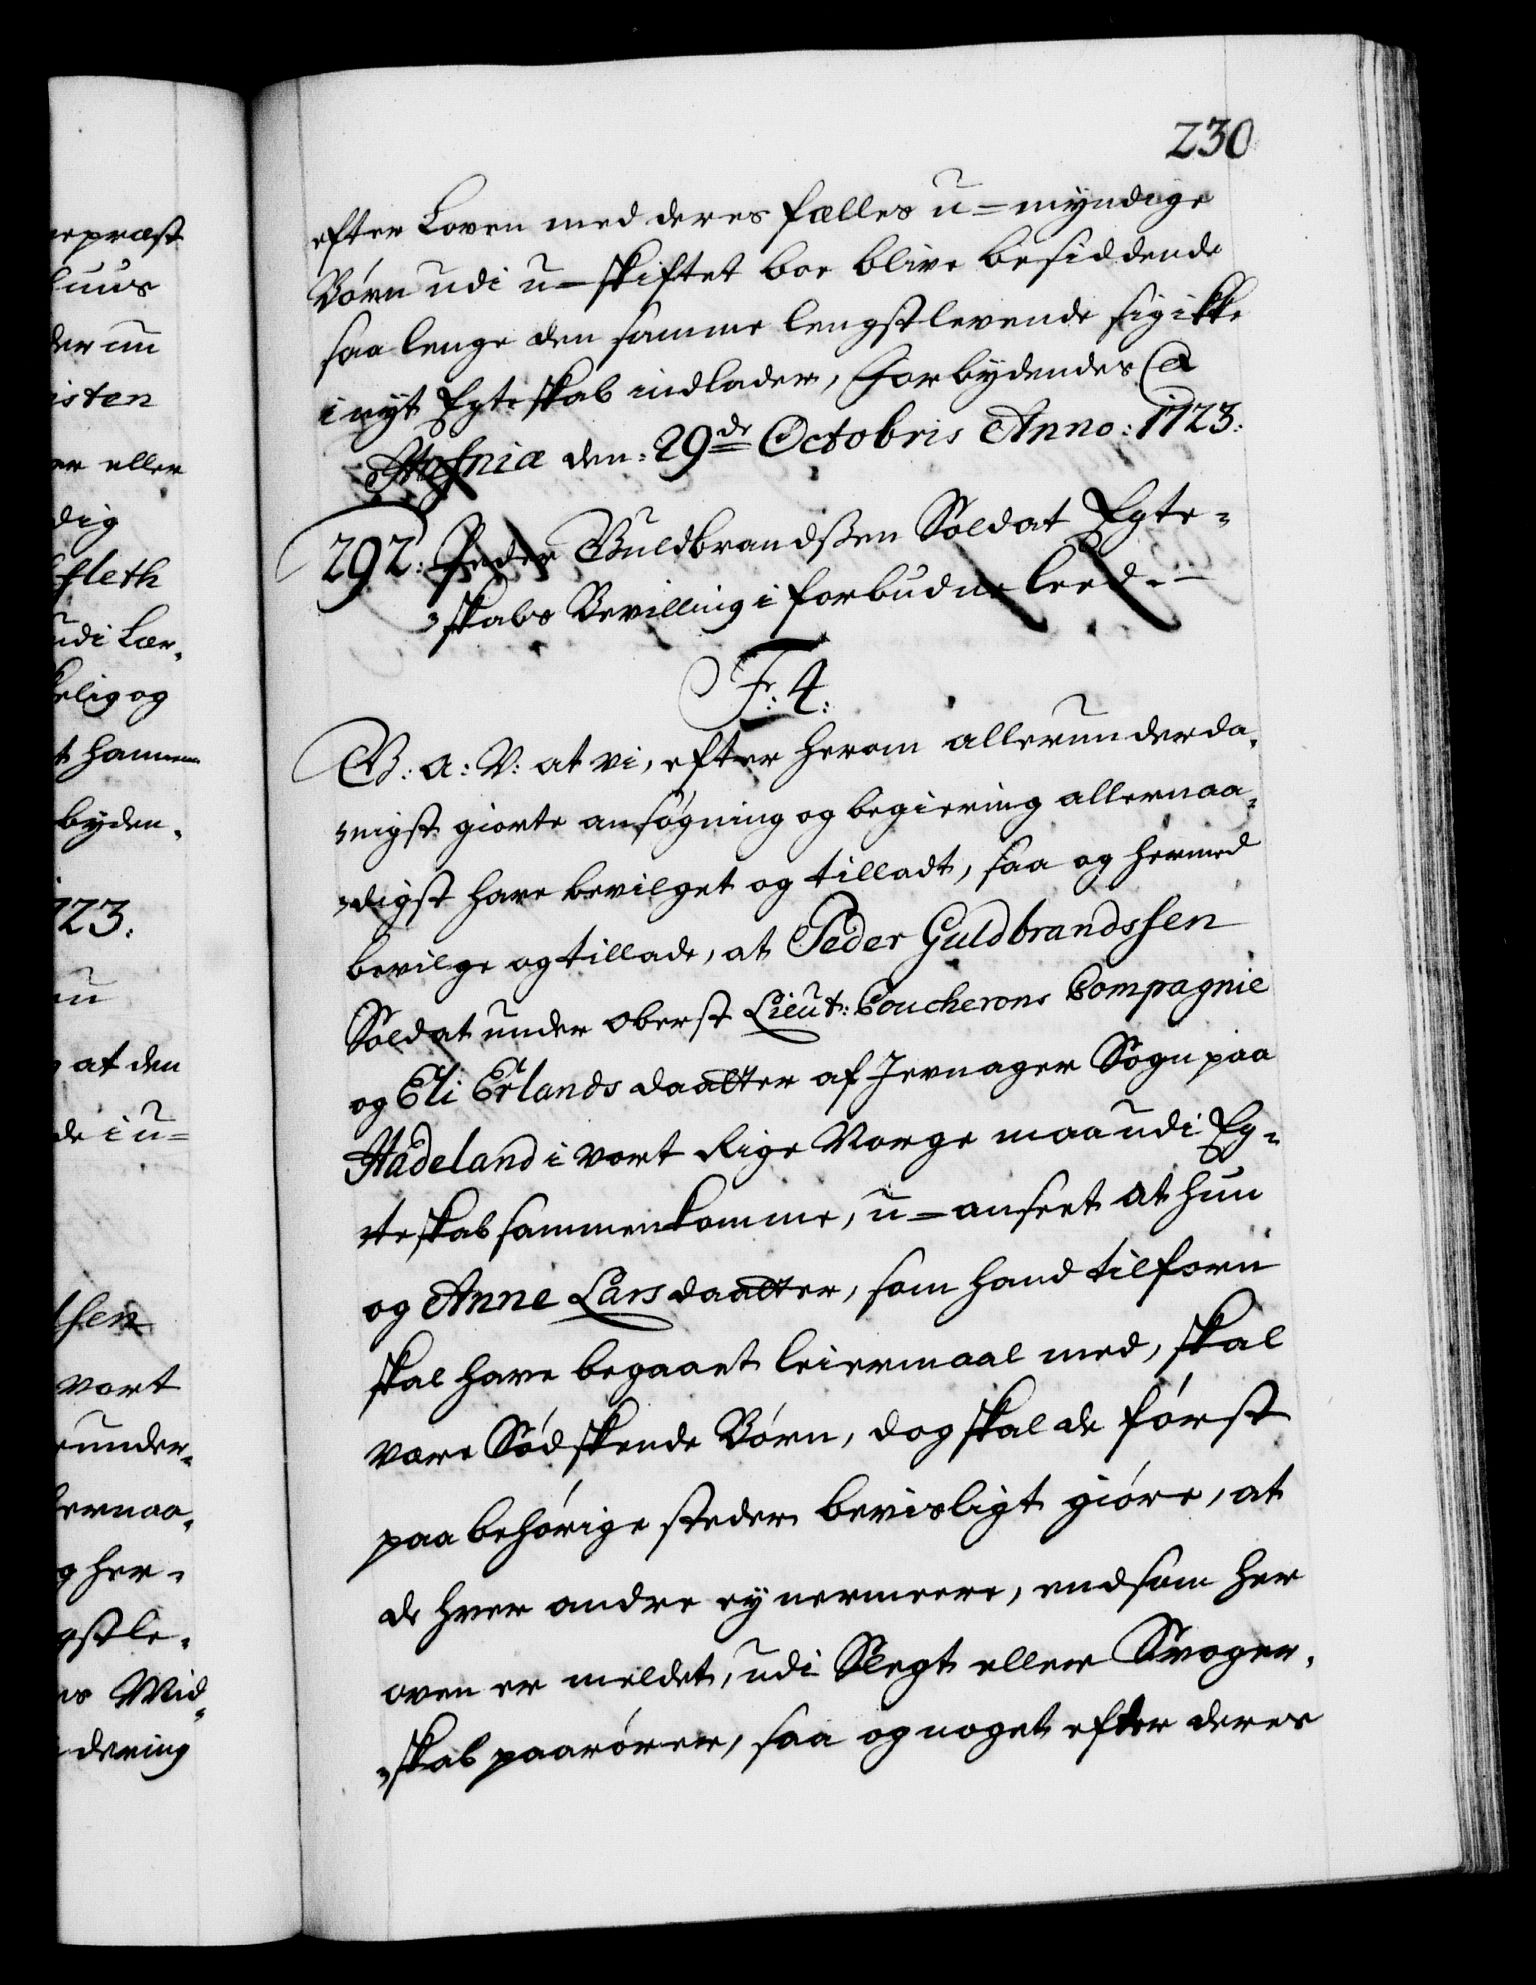 230
efter Loven med deres fælles u=myndige
Börn udi u=skiftet boe blive besiddende
saa lenge den samme lengstlevende sig ikke
i nyt Egteskab indlader, Forbydendes &
Hafniæ den: 29de Octobris Anno: 1723:
292: Peder Guldbrandssen Soldat Egte=
=skabs Bevilling i forbudne leed.—
F: 4:
G: A: V: at vi, efter herom allerunderda=
=nigst giorte ansøgning og begiering allernaa=
=digst have bevilget og tilladt, saa og hermed
bevilge og tillade, at Peder Guldbrandssen
Soldat under oberst Lieut: Coucherons Compagnie
og Eli Erlands daatter af Jevnager Sogn paa
Hadeland i vort Rige Norge maa udi Eg=
=teskab sammenkomme, u=anseet at hun
og Anne Larsdaatter, som hand tilforn
skal have begaaet leiermaal med, skal
være Södskende Börn, dog skal de først
paa behörige steder bevisligt giöre, at
de hver andre ey nermeere, end som her
oven er meldet, udi Slegt eller Svoger=
=skab paarörer, saa og noget efter deres
epræst
huus
der un
isten
er eller
dig
fleth
udi Lær=
kelig og
t hannem
byden=
123.
un
at den
de i u=
sen
vort
under=
ernaa=
g her=
gstle=
es Mid=
dering